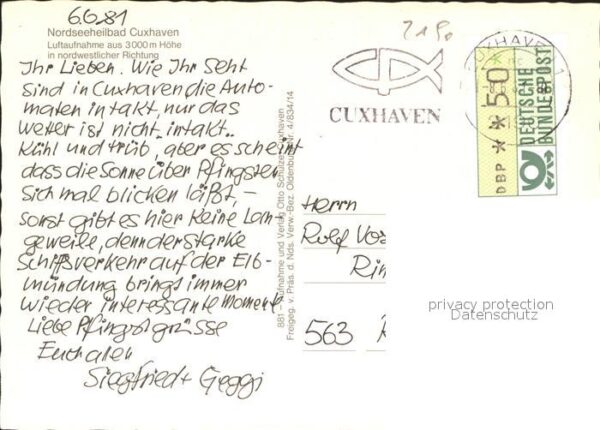 6.6.81
Nordseeheilbad Cuxhaven
Luftaufnahme aus 3000 m Höhe
in nordwestlicher Richtung
Ihr Lieben. Wie Ihr Seht
sind in Cuxhaven die Auto-
maten intakt, nur das
Wetter ist nicht intakt..
Kühl und trüb, aber es scheint
dass die Sonne über Pfingsten
sich mal blicken läßt, –
sonst gibt es hier keine Lan-
geweile, denn der starke
Schiffsverkehr auf der Elb-
mündung bringt immer
wieder interessante Momente
Liebe Pfingstgrüsse
Euch allen
Siegfried + Geggi
881 - Luftaufnahme und Verlag Otto Schulze, Cuxhaven
Freigeg. v. Präs. d. Nds. Verw.-Bez. Oldenburg Nr. 4/834/14
CUXHAVEN
CUXHAVEN 1
DBP * * 50
DEUTSCHE
BUNDESPOST
Herrn
Rolf
563
privacy protection
Datenschutz